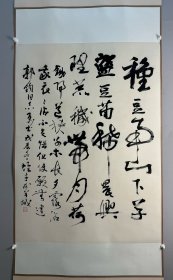 種豆南山下草
盛豆苗稀晨興
理荒穢帶月荷
鋤歸道狹草木長夕露沾
我衣衣沾不足惜但使願無違
同志